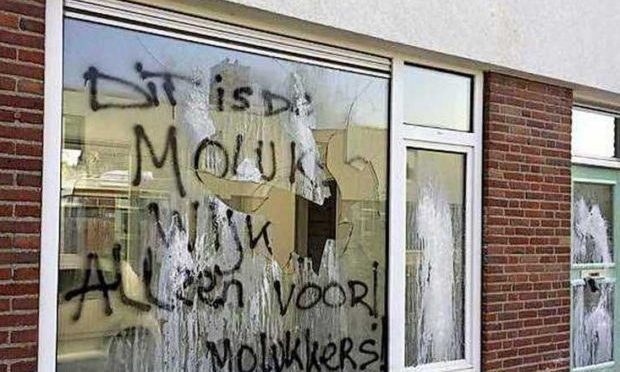 DiT is DE
MOLUK
WijK
ALLEEN VOOR
MOLUKKERS!